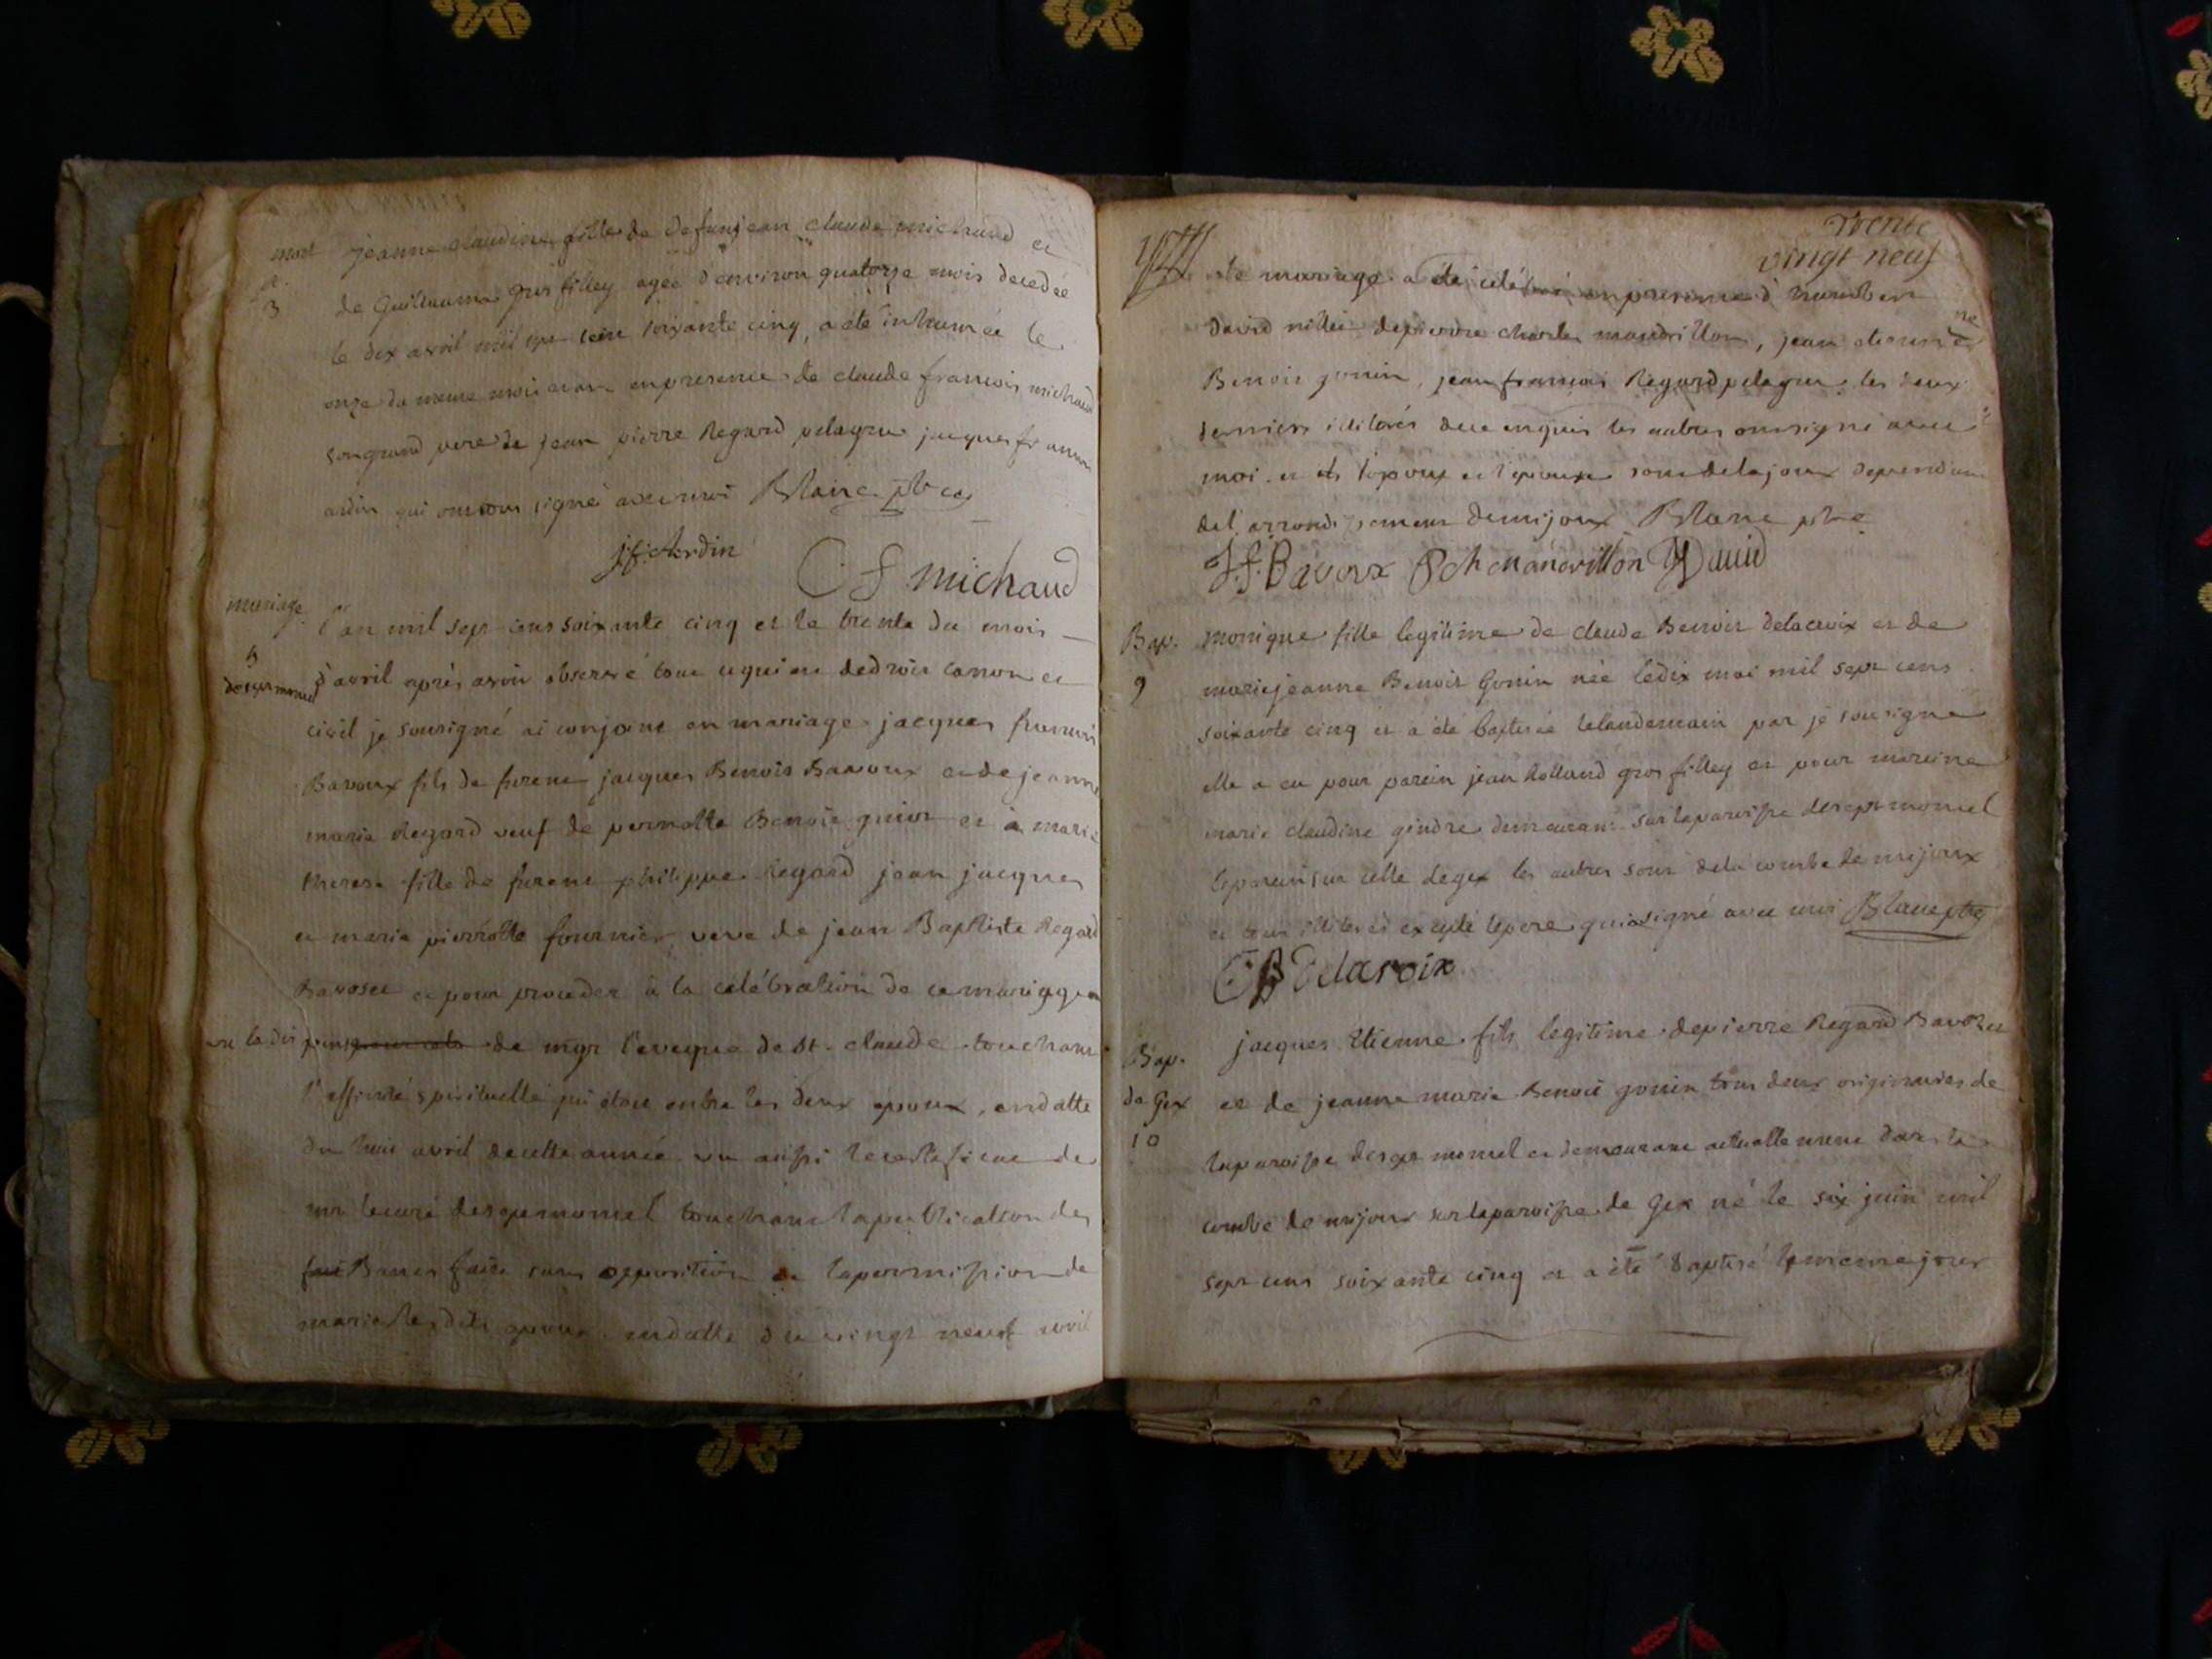 mort jeanne claudine fille de defun jean claude michaud et
3 de Guillauma gros filley agée d'environ quatorze mois decedée
le dix avril mil sept cens soixante cinq, a été inhumée le
onze du meme mois enpresence de claude francois michaud
son grand pere de jean pierre Regard pelagru jacques fr
ardin qui ont tous signé avec moi Blanc pb
j f Ardin
C f michaud
mariage l'an mil sept cens soixante cinq et le trente du mois
d'avril aprés avoir observé tout ce qui est de droit canon et
civil je sousigné ai conjoint en mariage jacques francois
Bavoux fils de furent jacques Benoit Bavoux et de jeanne
maria Regard veuf de pernette Benoit et a marie
therese fille de furent philippe Regard jean jacques
et maria pierrotte fournier veve de jean Baptiste Regard
Bavoset et pour proceder à la celébration de ce mariage
vu la dispense de mgr l'eveque de st. claude touchant
l'affinité spirituelle qui étoit entre les deux epoux, en datte
du huit avril de cette année vu aussi le certificat de
mr le curé de septmoncel touchant la publication des
Bancs faite sans opposition la permission de
marier les dits epoux en datte du vingt neuf avril
trente
vingt neuf
mariage a été celebré en presence d'humbert
david millet de pierre charles mandrillon, jean etienne
Benoit gonin, jean francois Regard pelagru les deux
derniers illiterés de ce enquis les autres ont signé avec
moi et l'epoux et l'epouse sont de lajoux dependant
de l'arrondissement de mijoux Blanc pbre
J. f. Bavoux P ch Mandrillon H David
Bap. monique fille legitime de claude Benoit delacroix et de
9 marie jeanne Benoit Gonin née le dix mai mil sept cens
soixante cinq et a été baptisée le landemain par je sousigné
elle a eu pour parein jean Rolland gros filley et pour mareine
marie claudine gindre demeurant sur la paroisse de septmoncel
le parein sur celle de gex les autres sont de la combe de mijoux
et tous illiterés excepté le pere qui a signé avec moi Blanc pbre
C B Delacroix
Bap. jacques Etienne fils legitime de pierre Regard Bavozet
de Gex et de jeanne marie Benoit gonin tous deux originaires de
10 la paroisse de sept moncel et demeurant actuellement dans la
combe de mijoux sur la paroisse de Gex né le six juin mil
sept cens soixante cinq et a été baptisé le meme jour